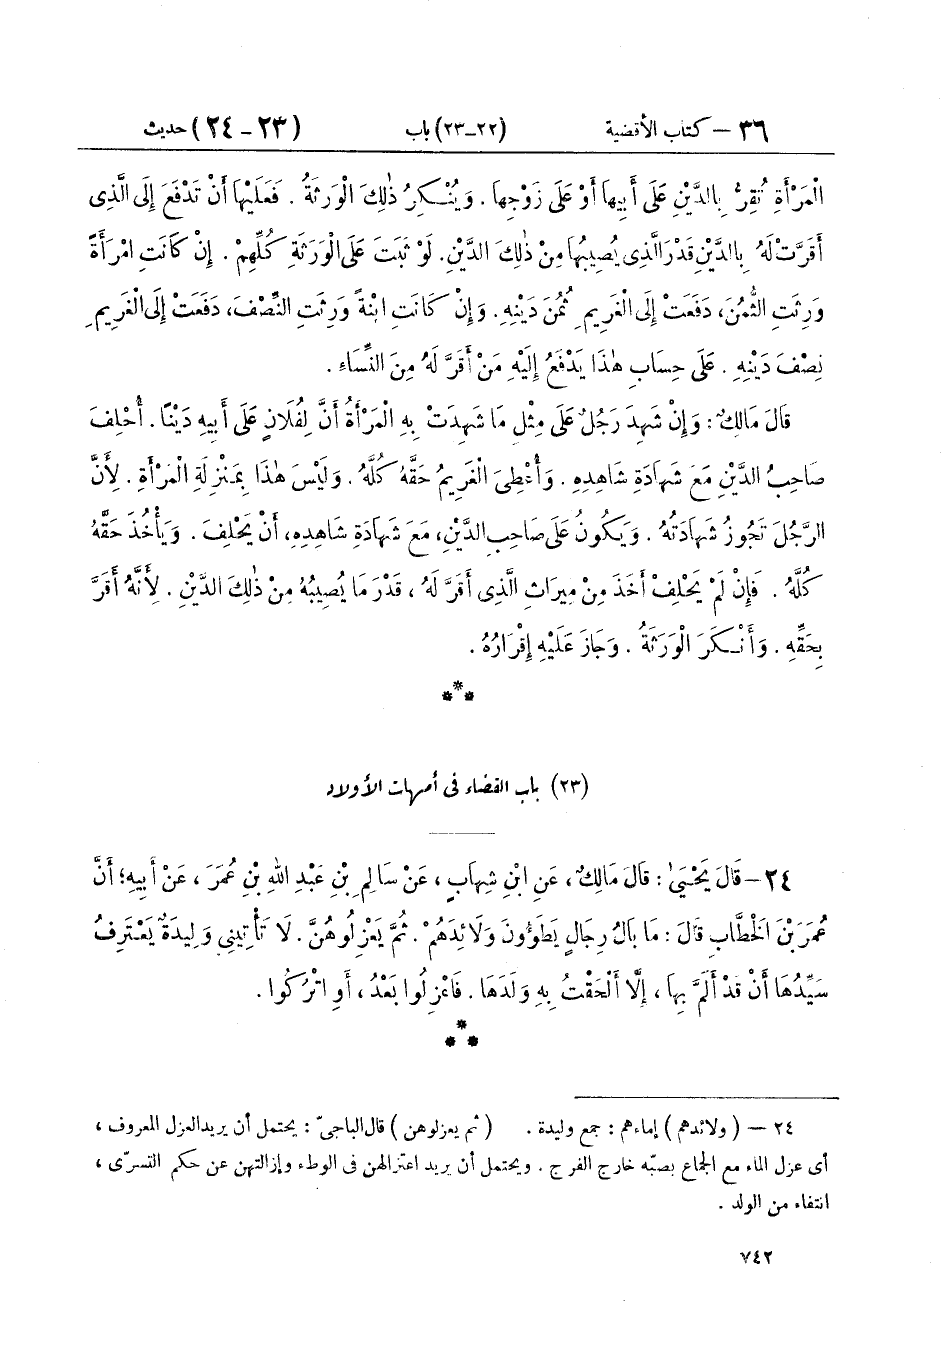 ٣٦ – كتاب الأقضية (٢٢–٢٣) باب (٢٣–٢٤) حديث
الْمَرْأَةِ تُقِرُّ بِالدَّيْنِ عَلَى أَبِيهاَ أَوْ عَلَى زَوْجِهاَ. وَيُنْكِرُ ذٰلِكَ الْوَرَثَةُ. فَعَلَيْهاَ أَنْ تَدْفَعَ إِلَى الَّذِى
أَقَرَّتْ لَهُ بِالدَّيْنِ قَدْرَ الَّذِى يُصِيبُهاَ مِنْ ذٰلِكَ الدَّيْنِ. لَوْ ثَبَتَ عَلَى الْوَرَثَةِ كُلِّهِمْ. إِنْ كَانَتِ امْرَأَةً
وَرِثَتِ الثُّمُنَ، دَفَعَتْ إِلَى الْغَرِيمِ ثُمُنَ دَيْنِهِ. وَإِنْ كَانَتِ ابْنَةً وَرِثَتِ النِّصْفَ، دَفَعَتْ إِلَى الْغَرِيمِ
نِصْفَ دَيْنِهِ. عَلَى حِسَابِ هٰذَا يَدْفَعُ إِلَيْهِ مَنْ أَقَرَّ لَهُ مِنَ النِّسَاءِ.
قَالَ مَالِكٌ: وَإِنْ شَهِدَ رَجُلٌ عَلَى مِثْلِ مَا شَهِدَتْ بِهِ الْمَرْأَةُ أَنَّ لِفُلَانٍ عَلَى أَبِيهِ دَيْنًا. أُحْلِفَ
صَاحِبُ الدَّيْنِ مَعَ شَهَادَةِ شَاهِدِهِ. وَأُعْطِىَ الْغَرِيمُ حَقَّهُ كُلَّهُ. وَلَيْسَ هٰذَا بِمَنْزِلَةِ الْمَرْأَةِ. لِأَنَّ
الرَّجُلَ تَجُوزُ شَهَادَتُهُ. وَيَكُونُ عَلَى صَاحِبِ الدَّيْنِ، مَعَ شَهَادَةِ شَاهِدِهِ، أَنْ يَحْلِفَ. وَيَأْخُذَ حَقَّهُ
كُلَّهُ. فَإِنْ لَمْ يَحْلِفْ أَخَذَ مِنْ مِيرَاثِ الَّذِى أَقَرَّ لَهُ، قَدْرَ مَا يُصِيبُهُ مِنْ ذٰلِكَ الدَّيْنِ. لِأَنَّهُ أَقَرَّ
بِحَقِّهِ. وَأَنْكَرَ الْوَرَثَةُ. وَجَازَ عَلَيْهِ إِقْرَارُهُ.
***
(٢٣) باب القضاء فى أمهات الأولاد
٢٤ – قَالَ يَحْيَىٰ: قَالَ مَالِكٌ، عَنِ ابْنِ شِهَابٍ، عَنْ سَالِمِ بْنِ عَبْدِ اللهِ بْنِ عُمَرَ، عَنْ أَبِيهِ؛ أَنَّ
عُمَرَ بْنَ الْخَطَّابِ قَالَ: مَا بَالُ رِجَالٍ يَطَؤُونَ وَلَائِدَهُمْ. ثُمَّ يَعْزِلُوهُنَّ. لَا تَأْتِينِي وَلِيدَةٌ يَعْتَرِفُ
سَيِّدُهَا أَنْ قَدْ أَلَمَّ بِهاَ، إِلَّا أَلْحَقْتُ بِهِ وَلَدَهَا. فَاعْزِلُوا بَعْدُ، أَوِ اتْرُكُوا.
***
٢٤ – (ولائدهم) إماءهم: جمع وليدة. (ثم يعزلوهن) قال الباجىّ: يحتمل أن يريد العزل المعروف،
أى عزل الماء مع الجماع بصبّه خارج الفرج. ويحتمل أن يريد اعتزالهن فى الوطء وإزالتهن عن حكم التسرّى،
انتفاء من الولد.
٧٤٢